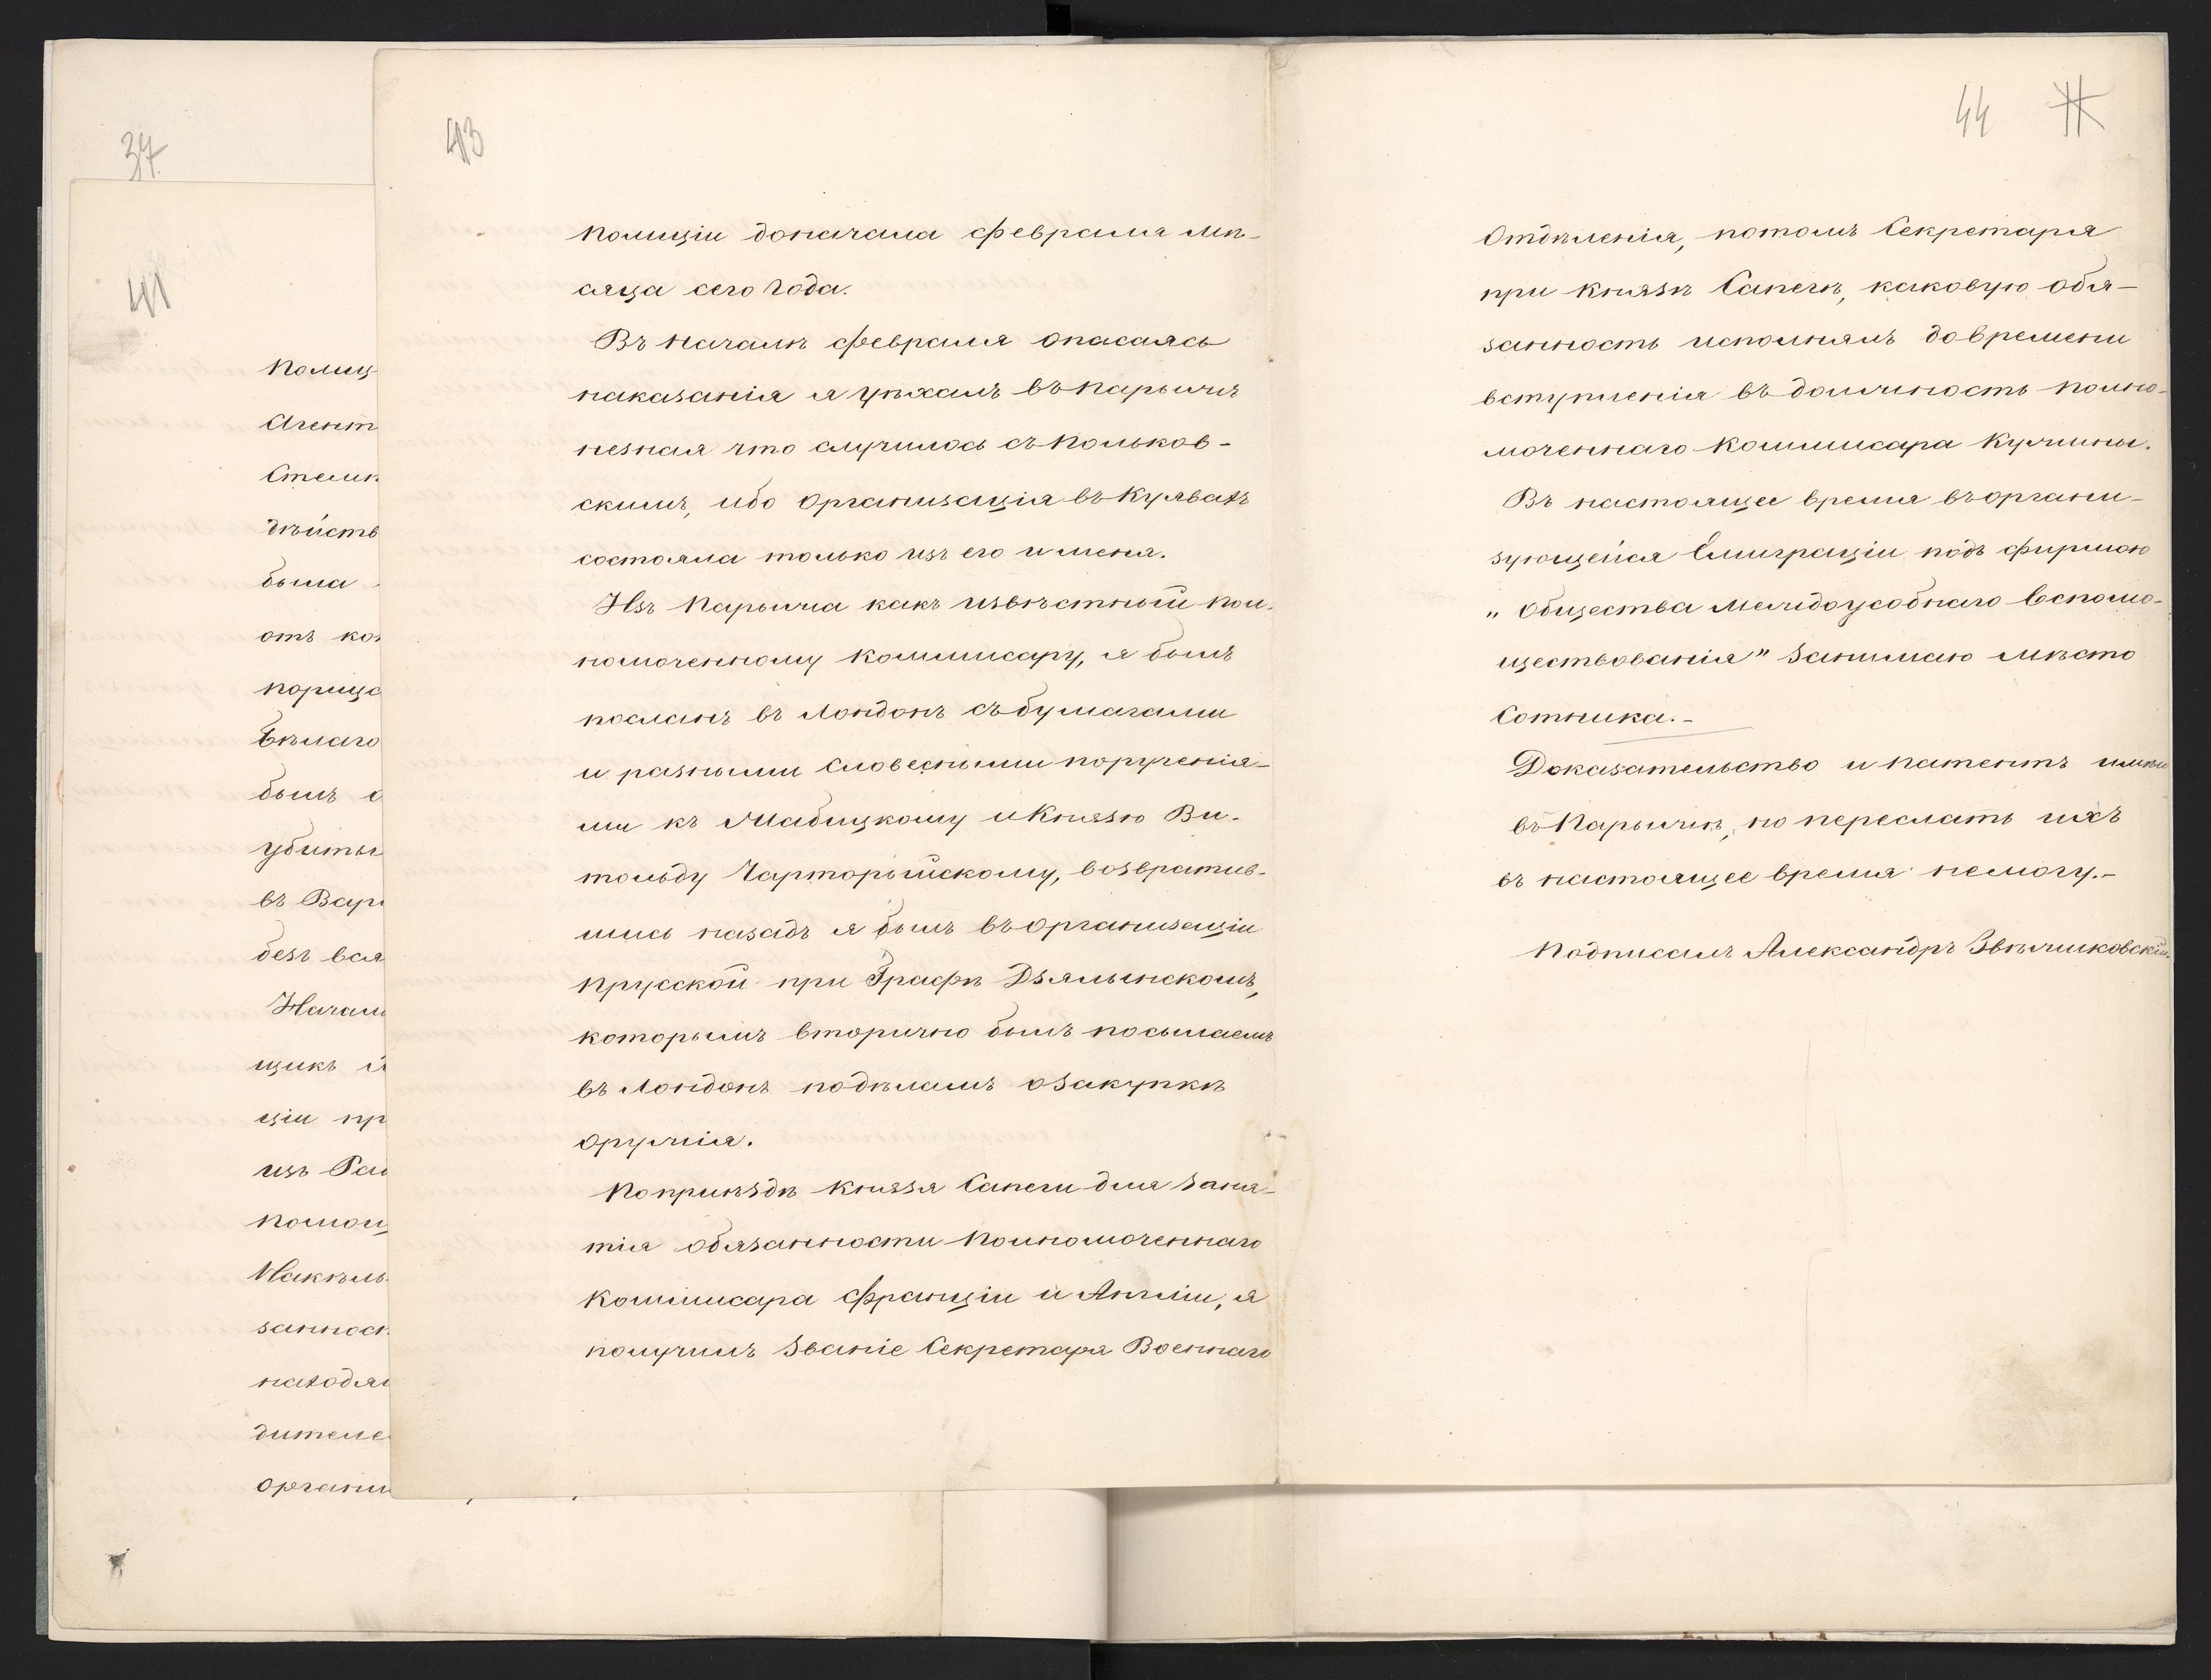 37
41
Полиц
Агент
Стели
дѣйств
была
отъ ко
порица
Бѣлаго
былъ
убиты
въ Вар
безъ вся
Начал
щикъ
ціи пр
изъ Ра
помощ
занност
находя
дителе
органи
43
полиціи до начала февраля мѣ-
сяца сего года.
Въ началѣ февраля опасаясь
наказанія я уѣхалъ въ Парыжъ
незная что случилось съ Польков-
скимъ, ибо организація въ Куявахъ
состояла только изъ его и меня.
Изъ Парыжа какъ извѣстный пол-
номоченному Коммисару, я былъ
посланъ въ Лондонъ съ бумагами
и разными словесными порученія-
ми къ Мабицкому и Князю Ви-
тольду Чарторыйскому, возвратив-
шись назадъ я былъ въ организаціи
прусской при Графѣ Дзялынскомъ,
которымъ вторично былъ посылаемъ
въ Лондонъ по дѣламъ о закупкѣ
оружія.
По приѣздѣ Князя Сапеги для заня-
тія обязанности Полномоченнаго
Коммисара Франціи и Англіи, я
получилъ званіе Секретаря Военнаго
44
Отдѣленія, потомъ Секретаря
при Князѣ Сапегѣ, каковую обя-
занность исполнялъ до времени
вступленія въ должность полно-
моченнаго Коммисара Куржины.
Въ настоящее время въ органи-
зующейся Емиграціи подъ фирмою
„Общества Междоусобнаго Вспомо-
ществованія" занимаю мѣсто
Сотника.-
Доказательство и патентъ имѣю
въ Парыжѣ, но переслать ихъ
въ настоящее время не могу.-
Подписалъ Александръ Звѣржиковскій.